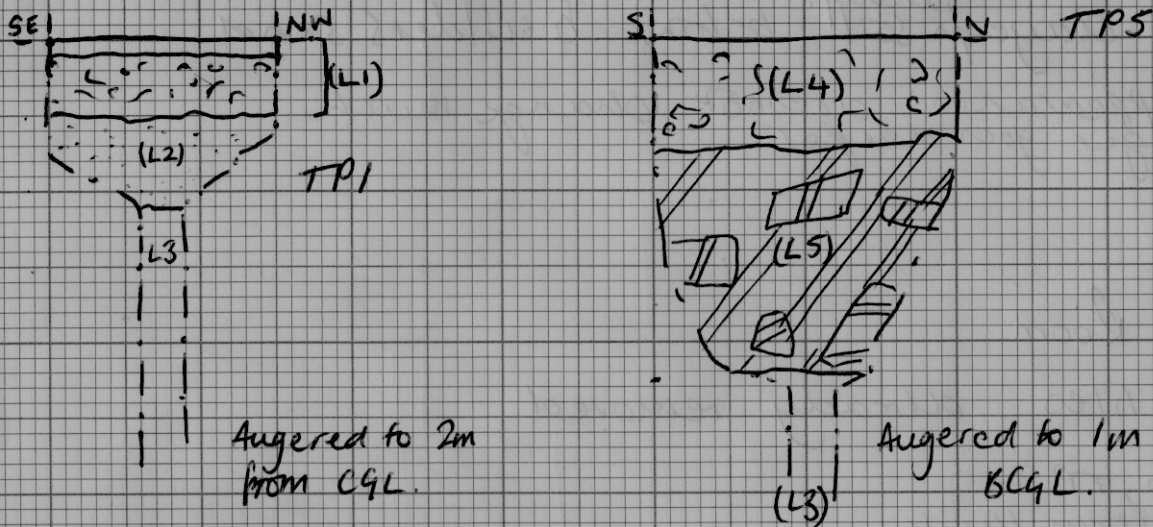 SE NW
(L1)
(L2)
TP1
L3
Augered to 2m
from CGL.
S N TP5
(L4)
(L5)
Augered to 1m
BCGL.
(L3)